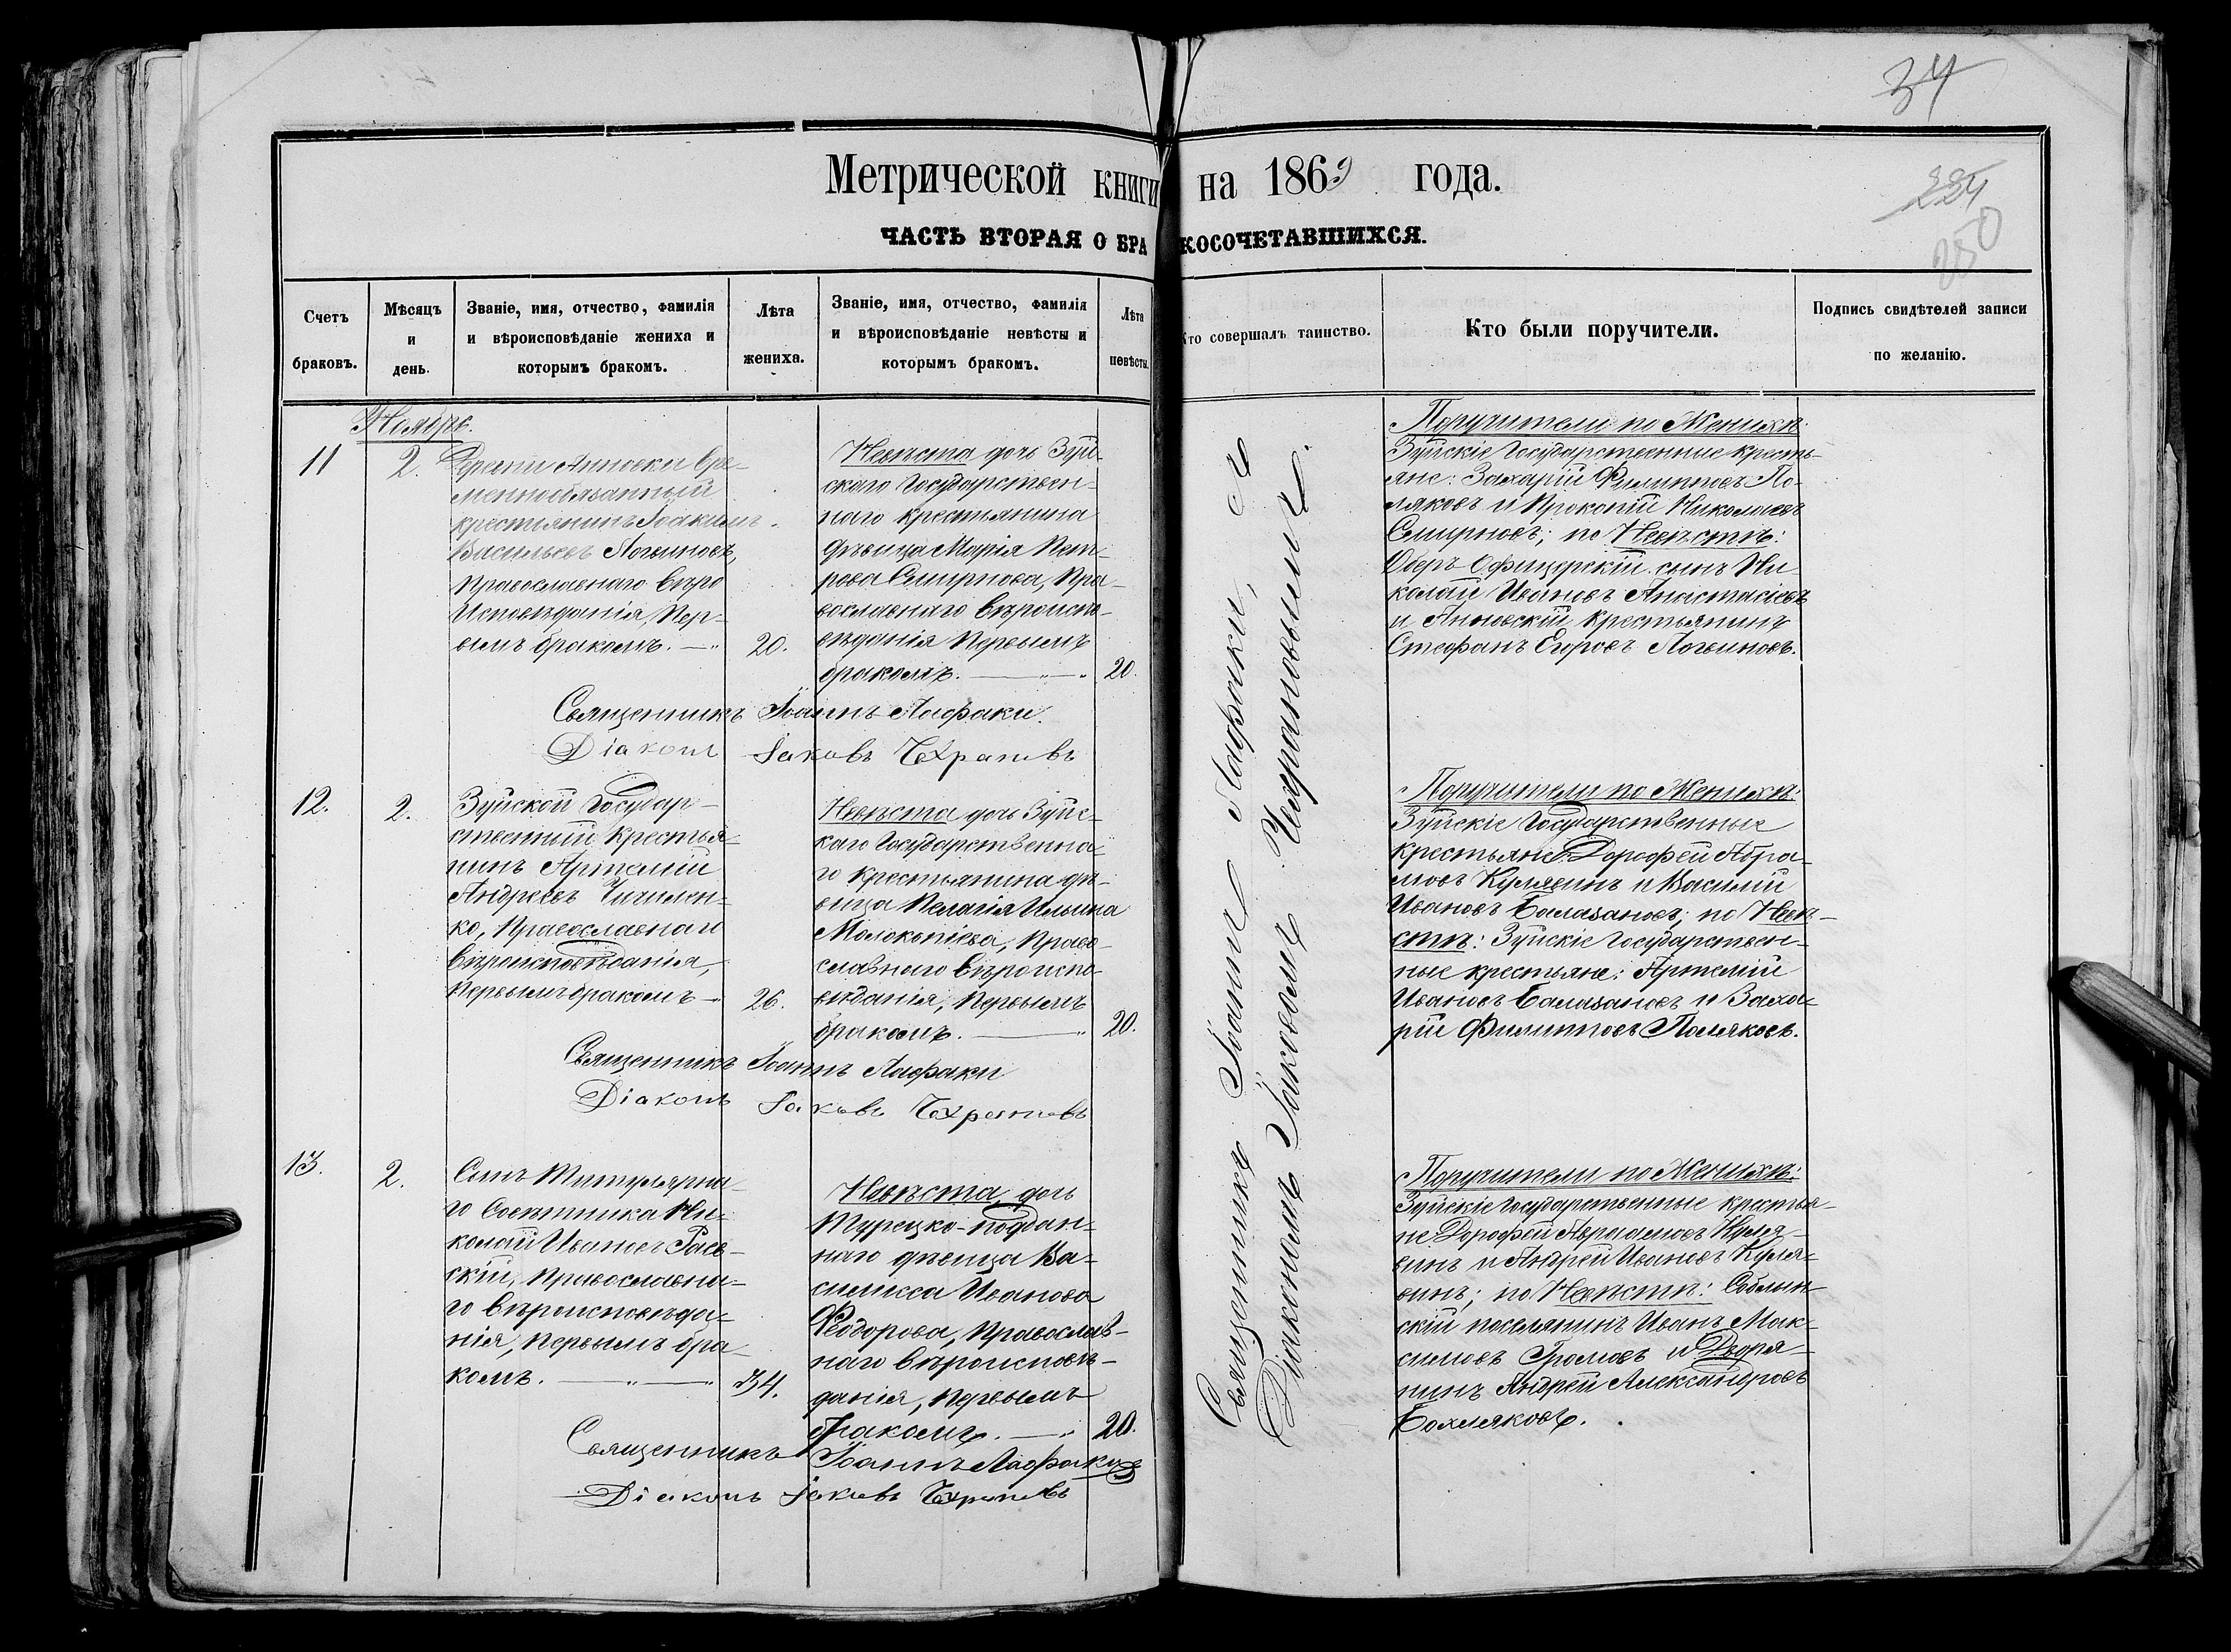 34
Метрической книги на 1869 года.
224
250
ЧАСТЬ ВТОРАЯ О БРАКОСОЧЕТАВШИХСЯ.
Счетъ браковъ.
Мѣсяцъ и день.
Званіе, имя, отчество, фамилія и вѣроисповѣданіе жениха и которымъ бракомъ.
Лѣта жениха.
Званіе, имя, отчество, фамилія и вѣроисповѣданіе невѣсты и которымъ бракомъ.
Лѣта невѣсты.
Кто совершалъ таинство.
Кто были поручители.
Подпись свидѣтелей записи по желанію.
Ноябрь.
11
2.
Анновки вре-
меннобязанный
крестьянинъ Іоакимъ
Васильевъ Логвиновъ,
Православнаго вѣро
Исповѣданія, Пер-
вымъ бракомъ.
20.
Невѣста дочь Зуй-
скаго Государствен-
наго Крестьянина
дѣвица Марія Пет-
рова Смирнова, Пра-
вославнаго вѣроиспо-
вѣданія Первымъ
бракомъ.
20.
Священникъ Іоаннъ Лафаки.
Діаконъ Іаковъ
Поручители по Женихѣ:
Зуйскіе Государственные кресть-
яне: Захарій Филипповъ По-
ляковъ и Прокопій Николаевъ
Смирновъ; по Невѣстѣ:
Оберъ-Офицерскій сынъ Ни-
колай Ивановъ Анастасіевъ
и Анновскій Крестьянинъ
Стефанъ Егоровъ Логвиновъ.
12.
2.
Зуйской Государ-
ственный Крестья-
нинъ Артемій
Андреевъ Чичилен-
ко, Православнаго
вѣроисповѣданія,
Первымъ бракомъ
26.
Невѣста дочь Зуйс-
каго Государственна-
го Крестьянина дѣ-
вица Пелагія Ильина
Молокоѣдова, Право-
славнаго вѣроиспо-
вѣданія, Первымъ
бракомъ.
20.
Священникъ Іоаннъ Лафаки
Діаконъ Іаковъ
Поручители по Женихѣ:
Зуйскіе Государственные
крестьяне: Дорофей Абра-
мовъ Кулявинъ и Василій
Ивановъ Балабановъ; по Невѣ-
стѣ: Зуйскіе Государствен-
ные крестьяне: Артемій
Ивановъ Балабановъ и Заха-
рій Филипповъ Поляковъ.
13.
2.
Сынъ Титулярна-
го Совѣтника Ни-
колай Ивановъ Раев-
скій, Православна-
го вѣроисповѣда-
нія, Первымъ бра-
комъ.
34.
Невѣста дочь
Турецко-поддан-
наго дѣвица Ва-
силисса Иванова
Ѳеодорова, Православ-
наго вѣроисповѣ-
данія, Первымъ
бракомъ.
20.
Священникъ Іоаннъ Лафаки
Діаконъ Іаковъ
Поручители по Женихѣ:
Зуйскіе Государственные крестья-
не Дорофей Абрамовъ Куля-
винъ и Андрей Ивановъ Куля-
винъ; по Невѣстѣ: Саблин-
скій поселянинъ Иванъ Мак-
симовъ Громовъ и Дворя-
нинъ Андрей Александровъ
Священникъ Іоаннъ Лафаки, съ
Діакономъ Іаковомъ